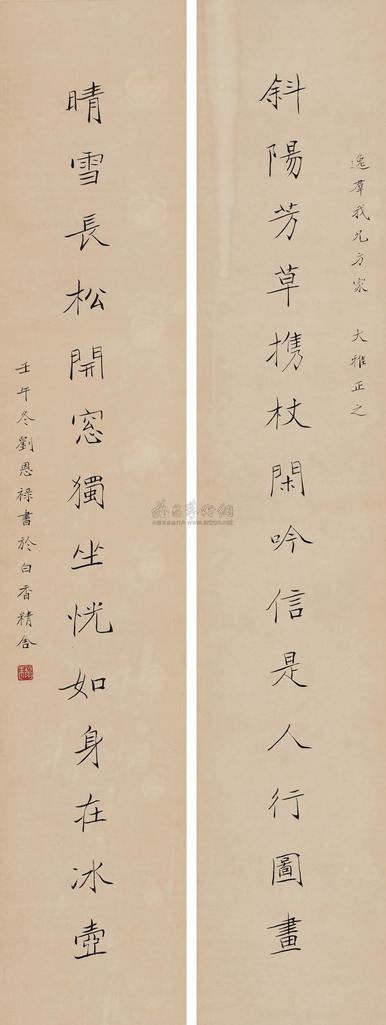 逸群我兄方家 大雅正之
斜陽芳草攜杖閑吟信是人行圖畫
晴雪長松開窓獨坐恍如身在冰壺
壬午冬劉恩祿書於白香精舍
www.artron.net